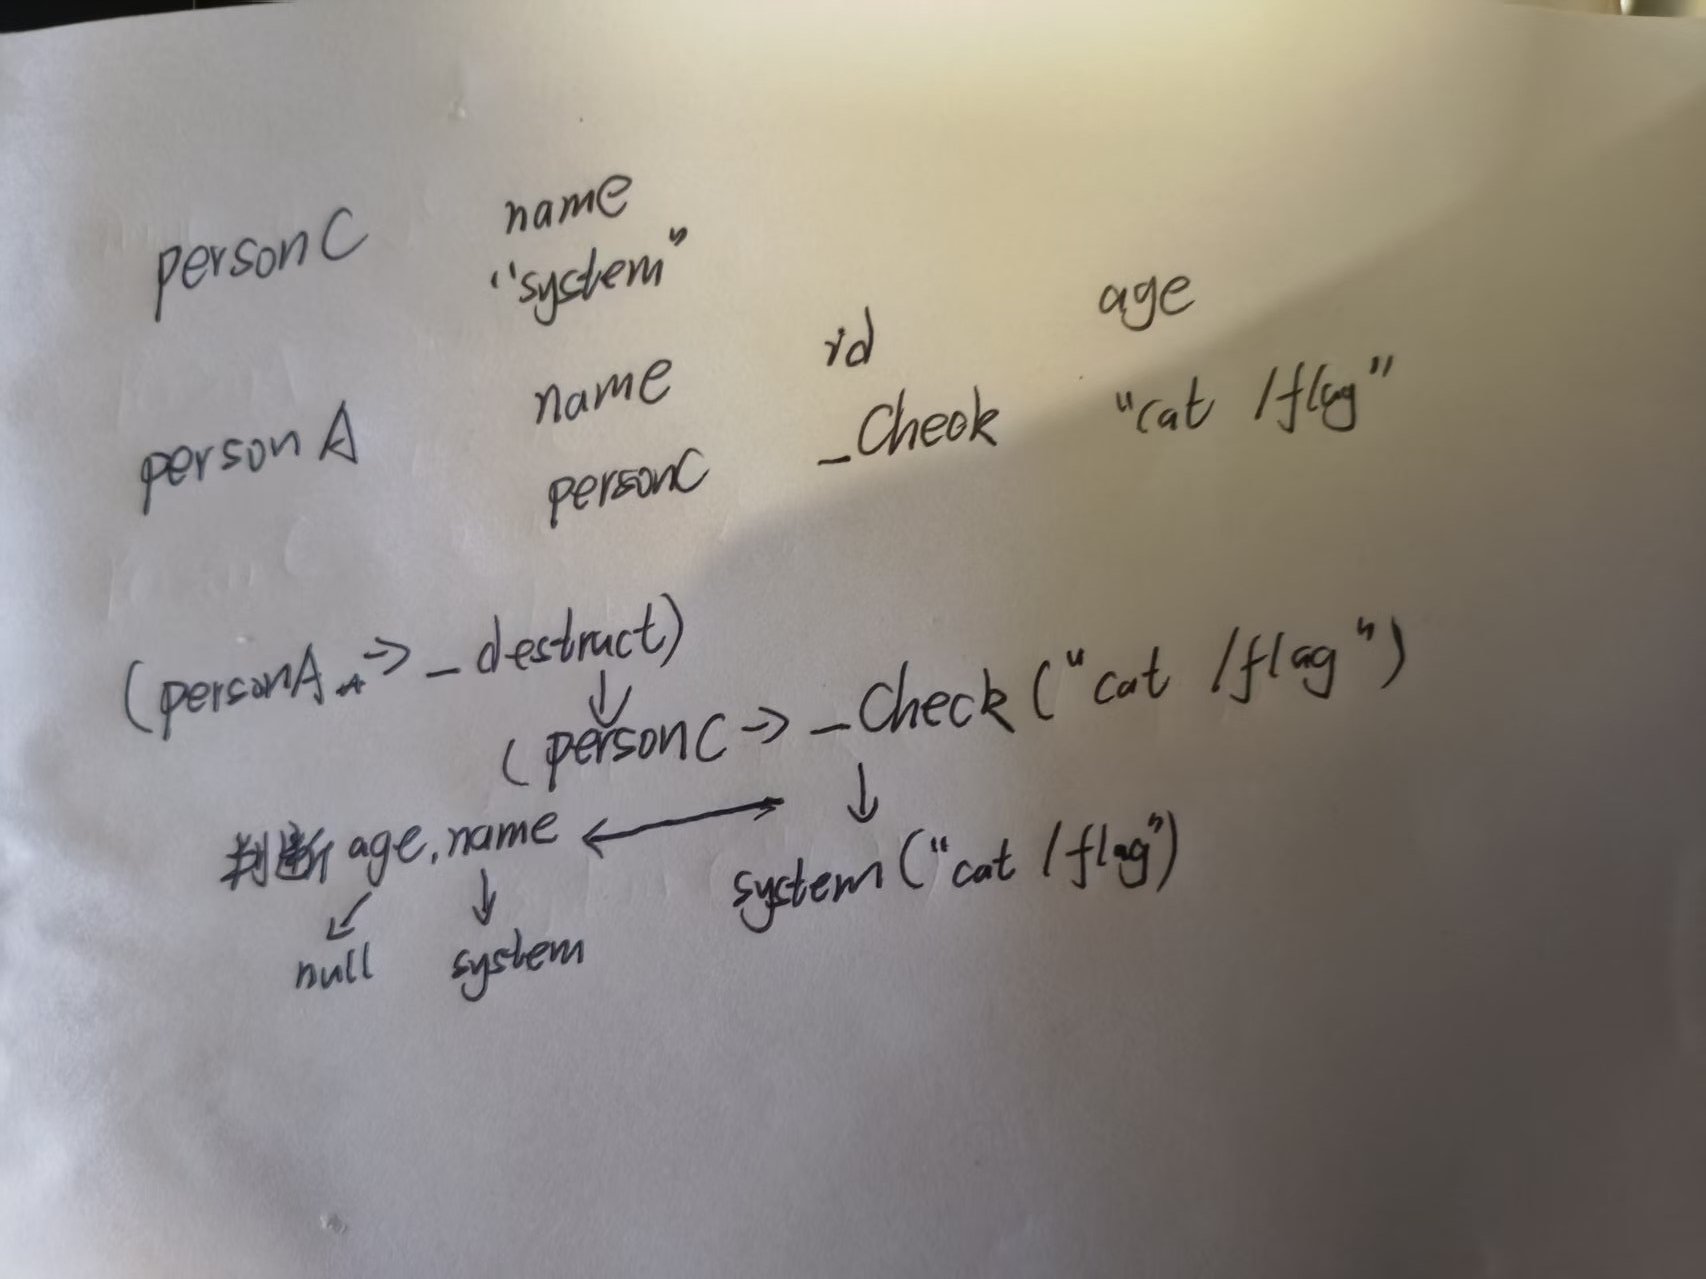 personC name
"system"
id age
personA name _Check "cat /flag"
personC
(personA -> _destruct)
↓
(personC -> _Check("cat /flag")
↓
判断 age,name ←→ system("cat /flag")
↙ ↓
null system